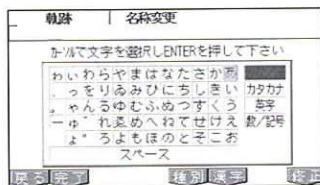 軌跡 名称変更
カーソルで文字を選択しENTERを押して下さい
ゎぃわらやまはなたさかあ
っをりゐみひにちしきい カタカナ
。ゃんるゆむふぬつすくう 英字
ーゅ゛れゑめへねてせけえ 数/記号
、ょ゜ろよもほのとそこお
スペース
戻る 完了 種別 漢字 修正